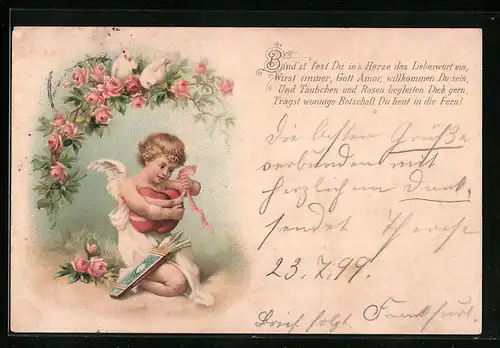 Bind'st fest Du in's Herze das Liebeswort ein,
Wirst immer, Gott Amor, willkommen Du sein,
Und Täubchen und Rosen begleiten Dich gern,
Trägst wonnige Botschaft Du heut in die Fern!
Die besten Grüße
verbunden mit
herzlichem Dank
sendet Therese
23.7.99.
Brief folgt. Frankfurt.